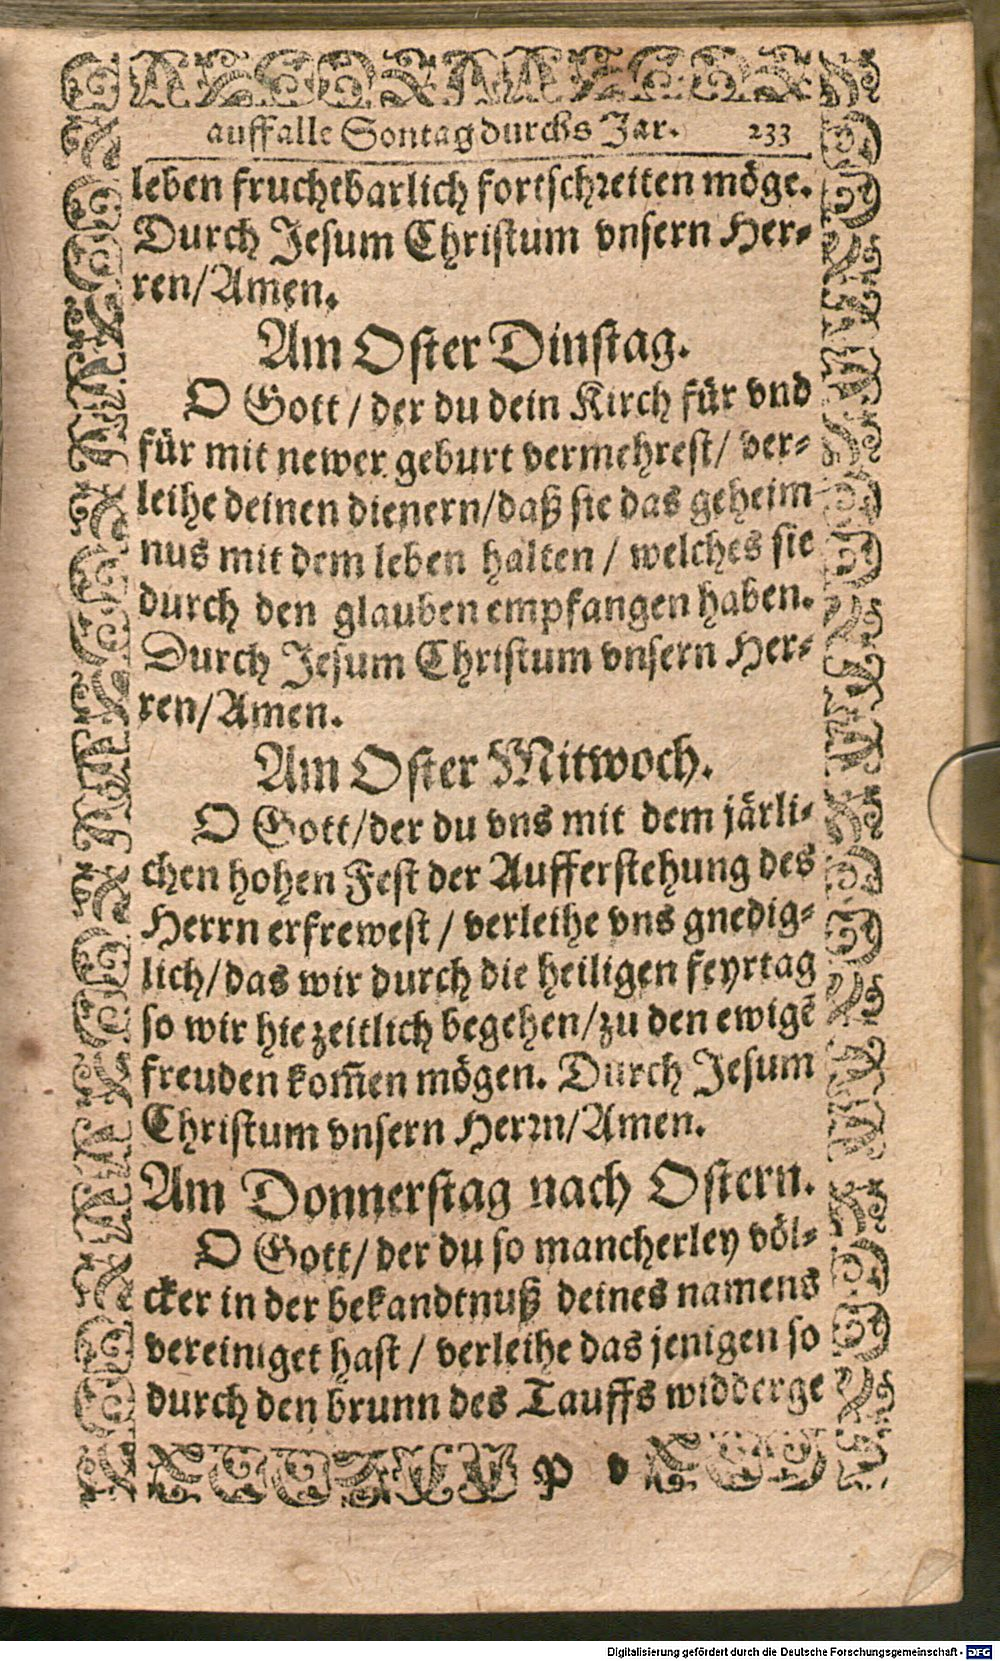 auff alle Sontag durchs Jar. 233
leben fruchtbarlich fortschreiten möge.
Durch Jesum Christum vnsern Her-
ren/Amen.
Am Oster Dinstag.
O Gott / der du dein Kirch für vnd
für mit newer geburt vermehrest/ ver-
leihe deinen dienern/daß sie das geheim
nus mit dem leben halten / welches sie
durch den glauben empfangen haben.
Durch Jesum Christum vnsern Her-
ren/Amen.
Am Oster Mitwoch.
O Gott/der du vns mit dem järli-
chen hohen Fest der Aufferstehung des
Herrn erfrewest / verleihe vns gnedig-
lich/das wir durch die heiligen feyrtag
so wir hie zeitlich begehen/zu den ewigẽ
freuden kom̃en mögen. Durch Jesum
Christum vnsern Herrn/Amen.
Am Donnerstag nach Ostern.
O Gott/ der du so mancherley völ-
cker in der bekandtnuß deines namens
vereiniget hast / verleihe das jenigen so
durch den brunn des Tauffs widderge
p v
Digitalisierung gefördert durch die Deutsche Forschungsgemeinschaft - DFG